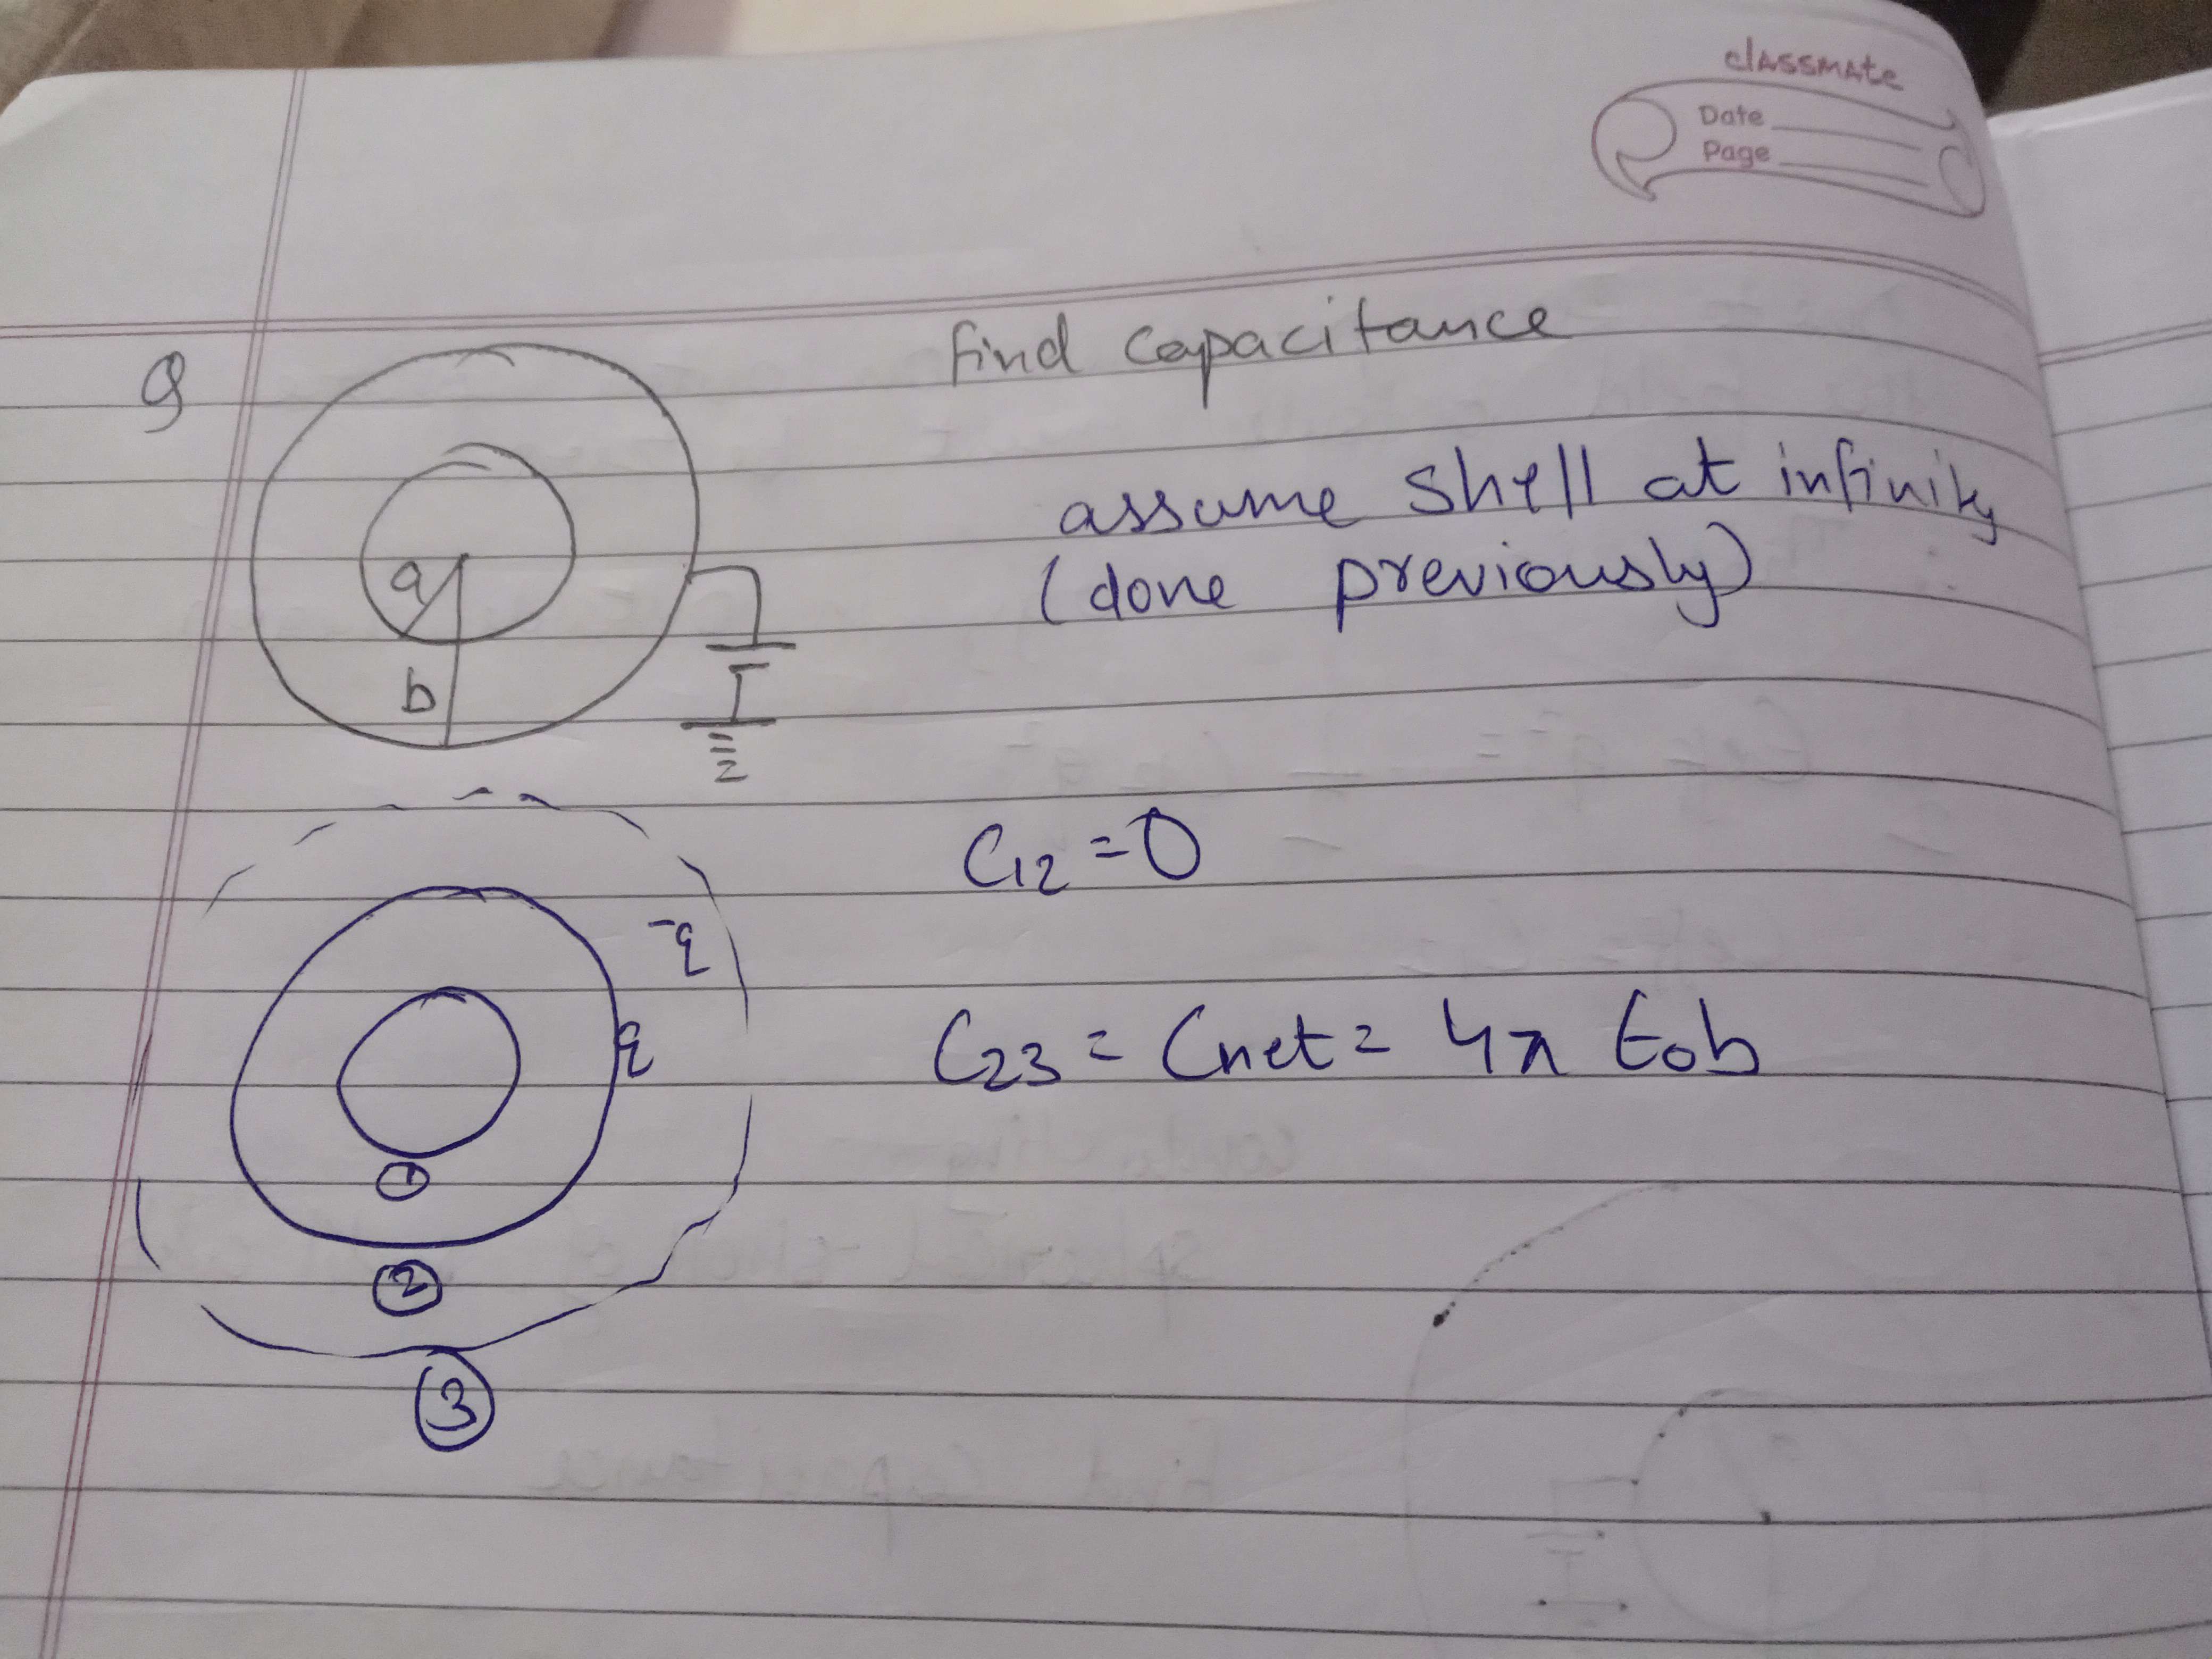 classmate
Date
Page
Q
Find capacitance
assume shell at infinity
(done previously)
a
b
C12 = 0
-q
q
C23 = Cnet = 4π ε0b
1
2
3